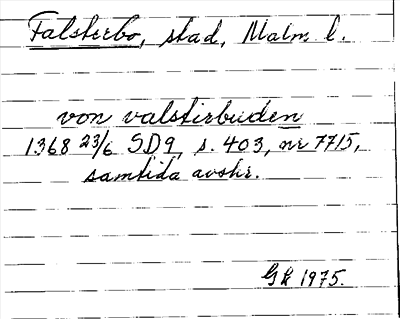 Falsterbo, stad, Malm l.
von valstirbuden
1368 23/6 SD9, s. 403, nr 7715,
samtida avskr.
GH 1975.